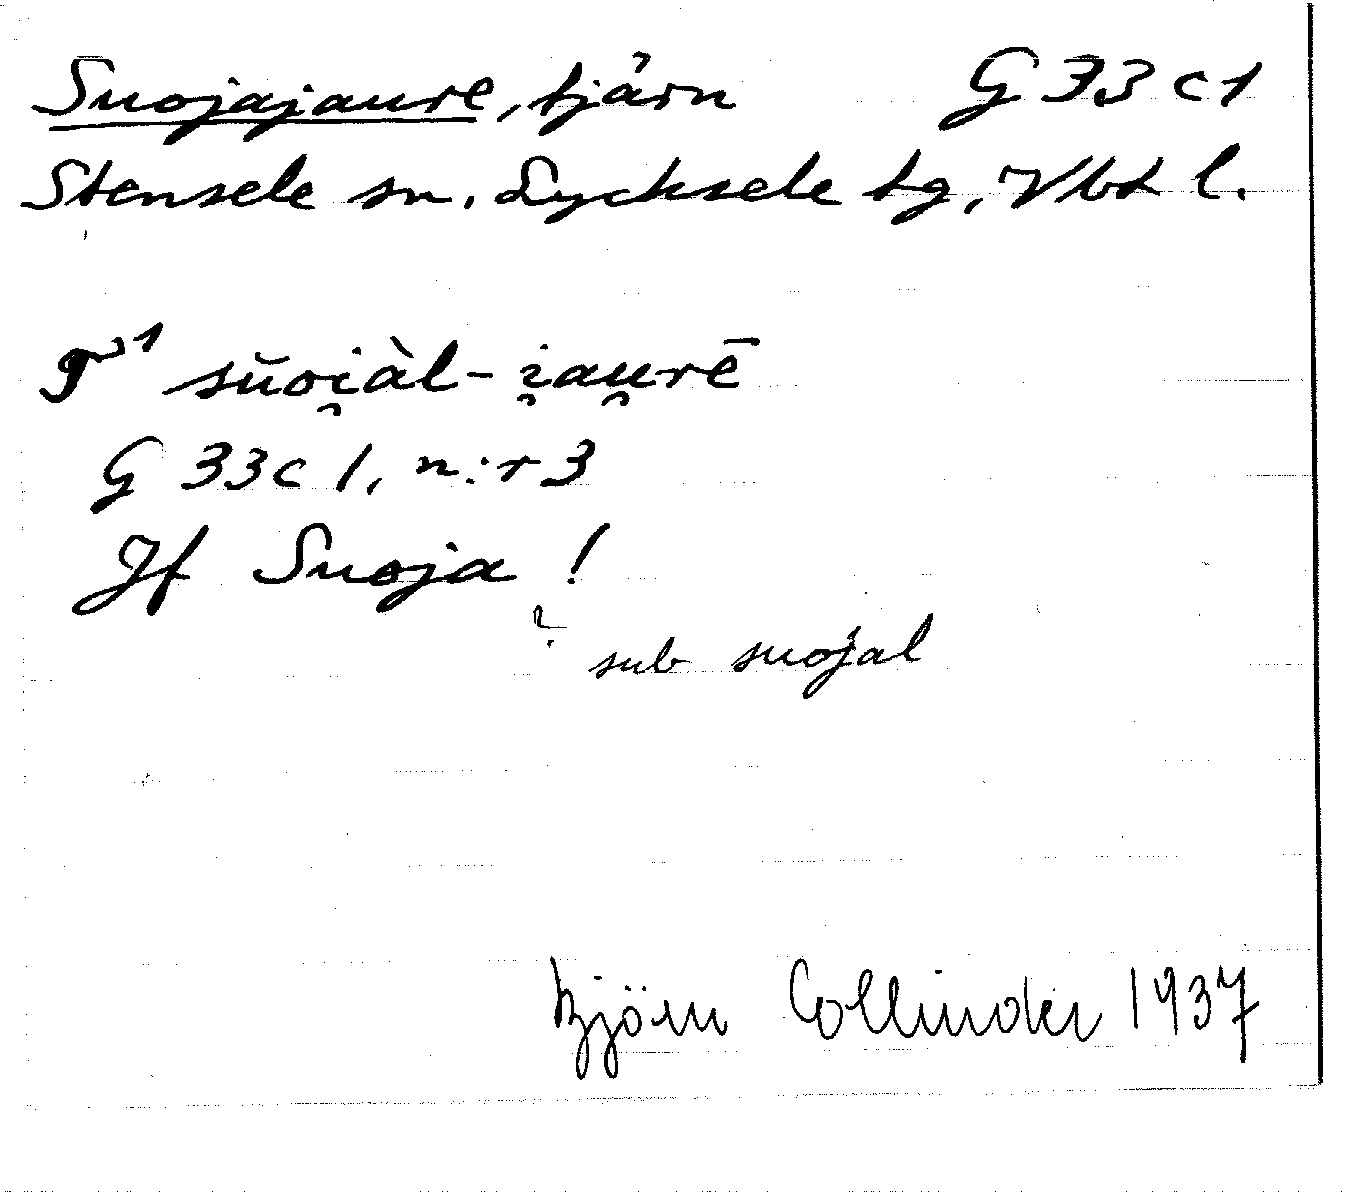 Suojajaure, tjärn G 33 c 1
Stensele sn. Lycksele tg, Vbt l.
sŭoi̯àl-i̯au̯rē
G 33 c 1, n:r 3
Jf Suoja !
? sub suojal
Björn Collinder 1937